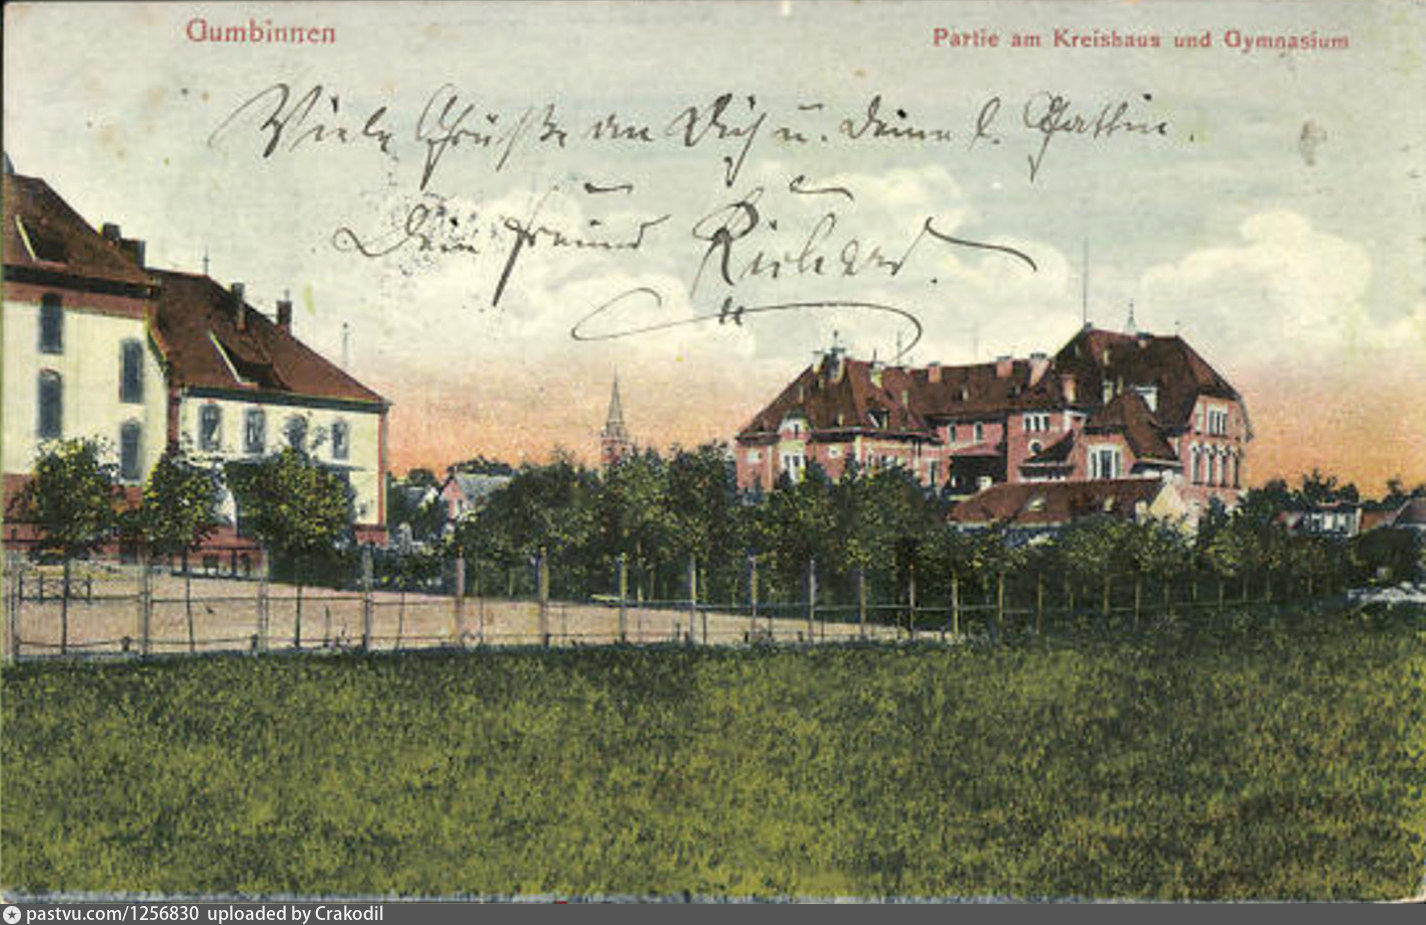 Gumbinnen
Partie am Kreishaus und Gymnasium
Viele Grüße an Dich u. Deine l. Gattin.
Dein Freund Richard.
pastvu.com/1256830 uploaded by Crakodil